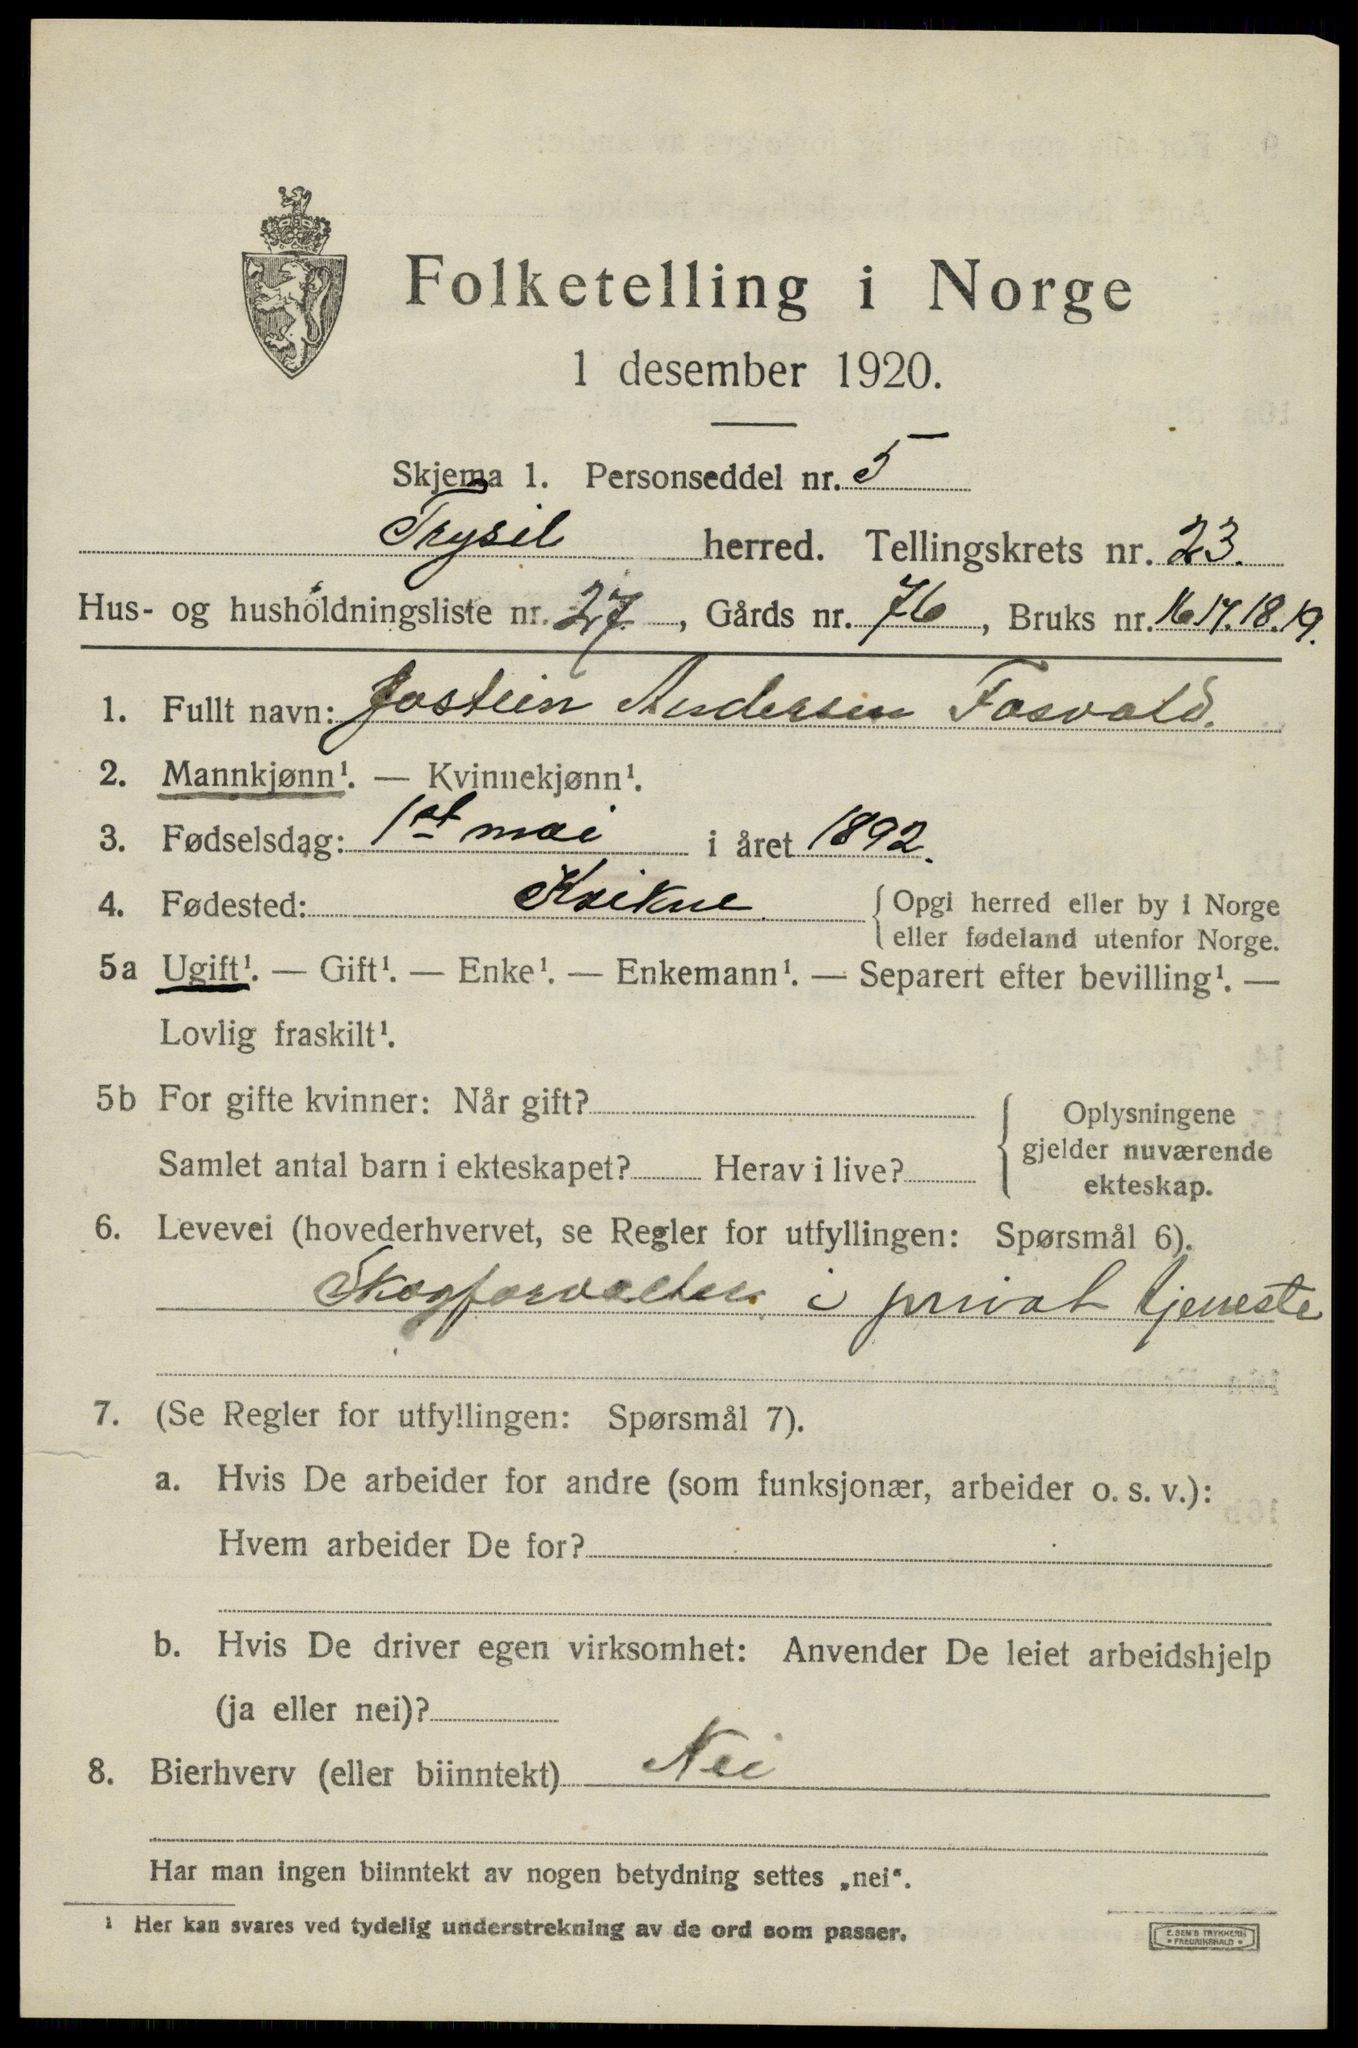 Folketelling i Norge
1 desember 1920.
Skjema 1. Personseddel nr. 5
Trysil herred. Tellingskrets nr. 23.
Hus- og husholdningsliste nr. 27. , Gårds nr. 76 , Bruks nr. 16.17.18.19.
1. Fullt navn: Jostein Andersen Fosvold.
2. Mannkjønn¹. — Kvinnekjønn¹.
3. Fødselsdag: 1st mai i året 1892.
4. Fødested: Kvikne. Opgi herred eller by i Norge
eller fødeland utenfor Norge.
5a Ugift¹. — Gift¹. — Enke¹. — Enkemann¹. — Separert efter bevilling¹. —
Lovlig fraskilt¹.
5b For gifte kvinner: Når gift?
Samlet antal barn i ekteskapet? Herav i live?
Oplysningene
gjelder nuværende
ekteskap.
6. Levevei (hovederhvervet, se Regler for utfyllingen: Spørsmål 6).
Skogforvalter i privat tjeneste
7. (Se Regler for utfyllingen: Spørsmål 7).
a. Hvis De arbeider for andre (som funksjonær, arbeider o. s. v.):
Hvem arbeider De for?
b. Hvis De driver egen virksomhet: Anvender De leiet arbeidshjelp
(ja eller nei)?
8. Bierhverv (eller biinntekt) Nei
Har man ingen biinntekt av nogen betydning settes „nei“.
¹ Her kan svares ved tydelig understrekning av de ord som passer.
E. SEM'S TRYKKERI
* FREDRIKSHALD *